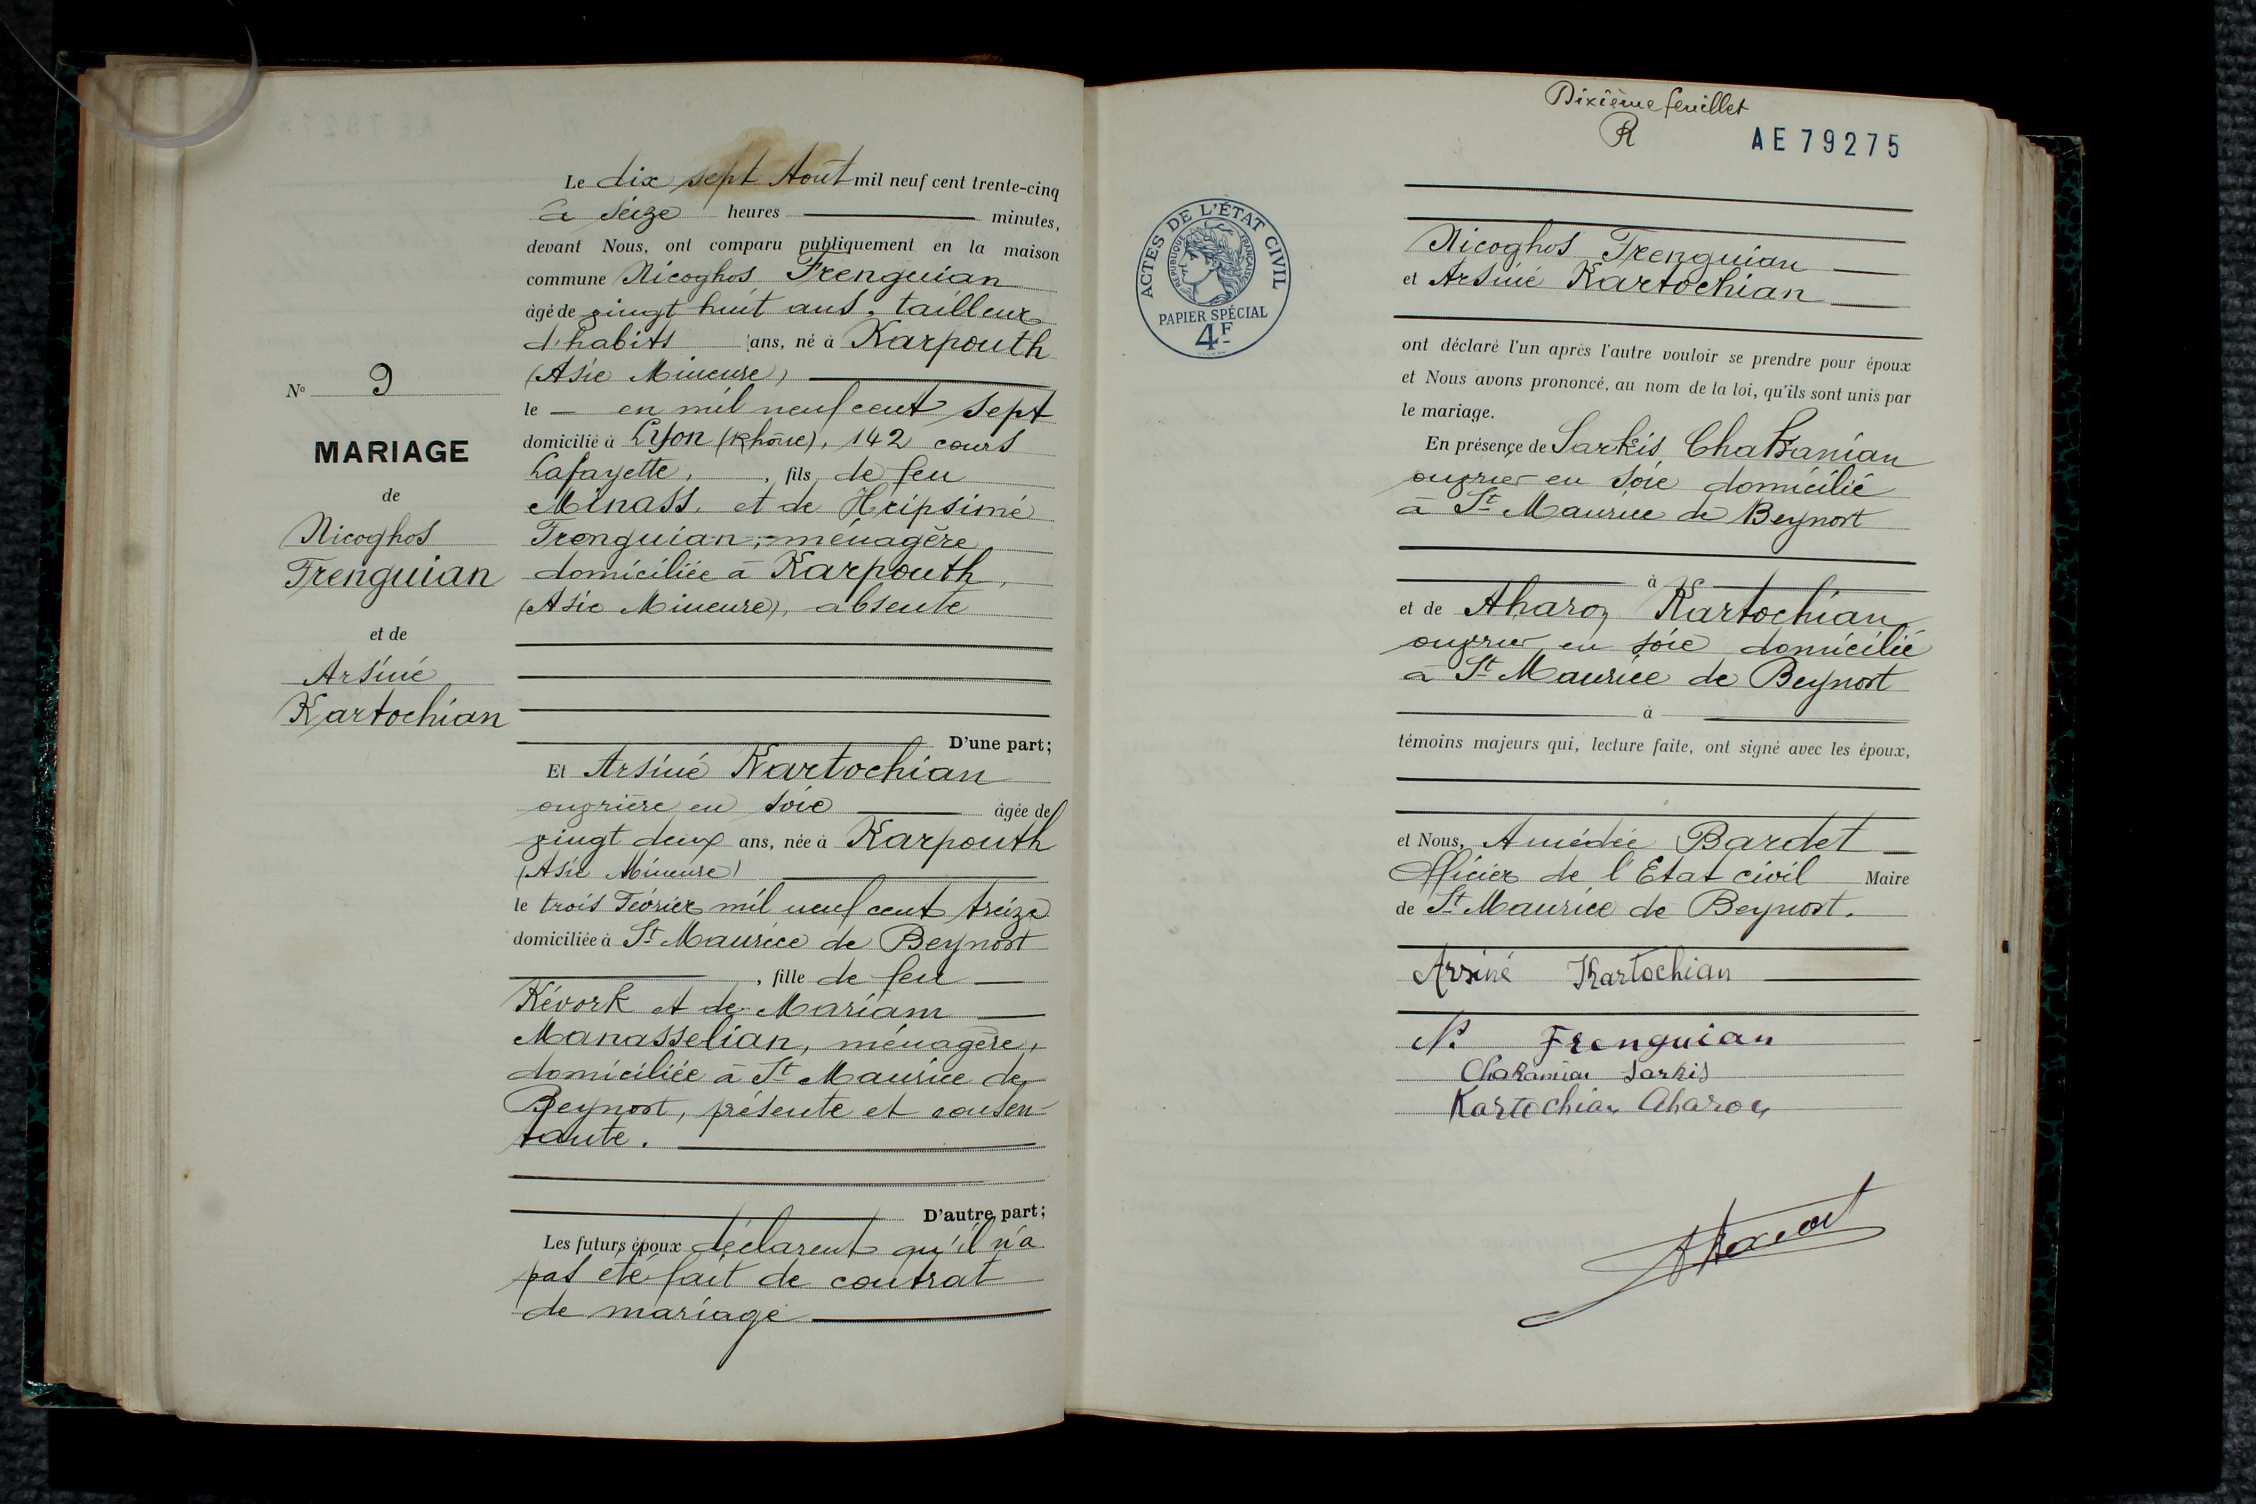 Le dix sept Août mil neuf cent trente-cinq
à seize heures minutes,
devant Nous, ont comparu publiquement en la maison
commune Nicoghos Frenguian
âgé de vingt huit ans, tailleur
d'habits ans, né à Karpouth
(Asie Mineure)
le — en mil neuf cent sept
domicilié à Lyon (Rhône), 142 cours
Lafayette, , fils de feu
Minass, et de Hripsimé
Frenguian, ménagère
domiciliée à Karpouth,
(Asie Mineure), absente
D'une part;
Et Arsiné Kartochian
ouvrière en soie âgée de
vingt deux ans, née à Karpouth
(Asie Mineure)
le trois Février mil neuf cent treize
domiciliée à St Maurice de Beynost
, fille de feu
Kévork et de Mariam
Manasselian, ménagère,
domiciliée à St Maurice de
Beynost, présente et consen-
tante.
D'autre part;
Les futurs époux déclarent qu'il n'a
pas été fait de contrat
de mariage
No 9
MARIAGE
de
Nicoghos
Frenguian
et de
Arsiné
Kartochian
Dixième feuillet
R
AE 79275
ACTES DE L'ÉTAT CIVIL
RÉPUBLIQUE FRANÇAISE
PAPIER SPÉCIAL
4F
Nicoghos Frenguian
et Arsiné Kartochian
ont déclaré l'un après l'autre vouloir se prendre pour époux
et Nous avons prononcé, au nom de la loi, qu'ils sont unis par
le mariage.
En présence de Sarkis Chakanian
ouvrier en soie domicilié
à St Maurice de Beynost
à
et de Aharon Kartochian
ouvrier en soie domicilié
à St Maurice de Beynost
à
témoins majeurs qui, lecture faite, ont signé avec les époux,
et Nous, Amédée Bardet
Officier de l'Etat civil Maire
de St Maurice de Beynost.
Arsiné Kartochian
N. Frenguian
Chakanian Sarkis
Kartochian Aharon